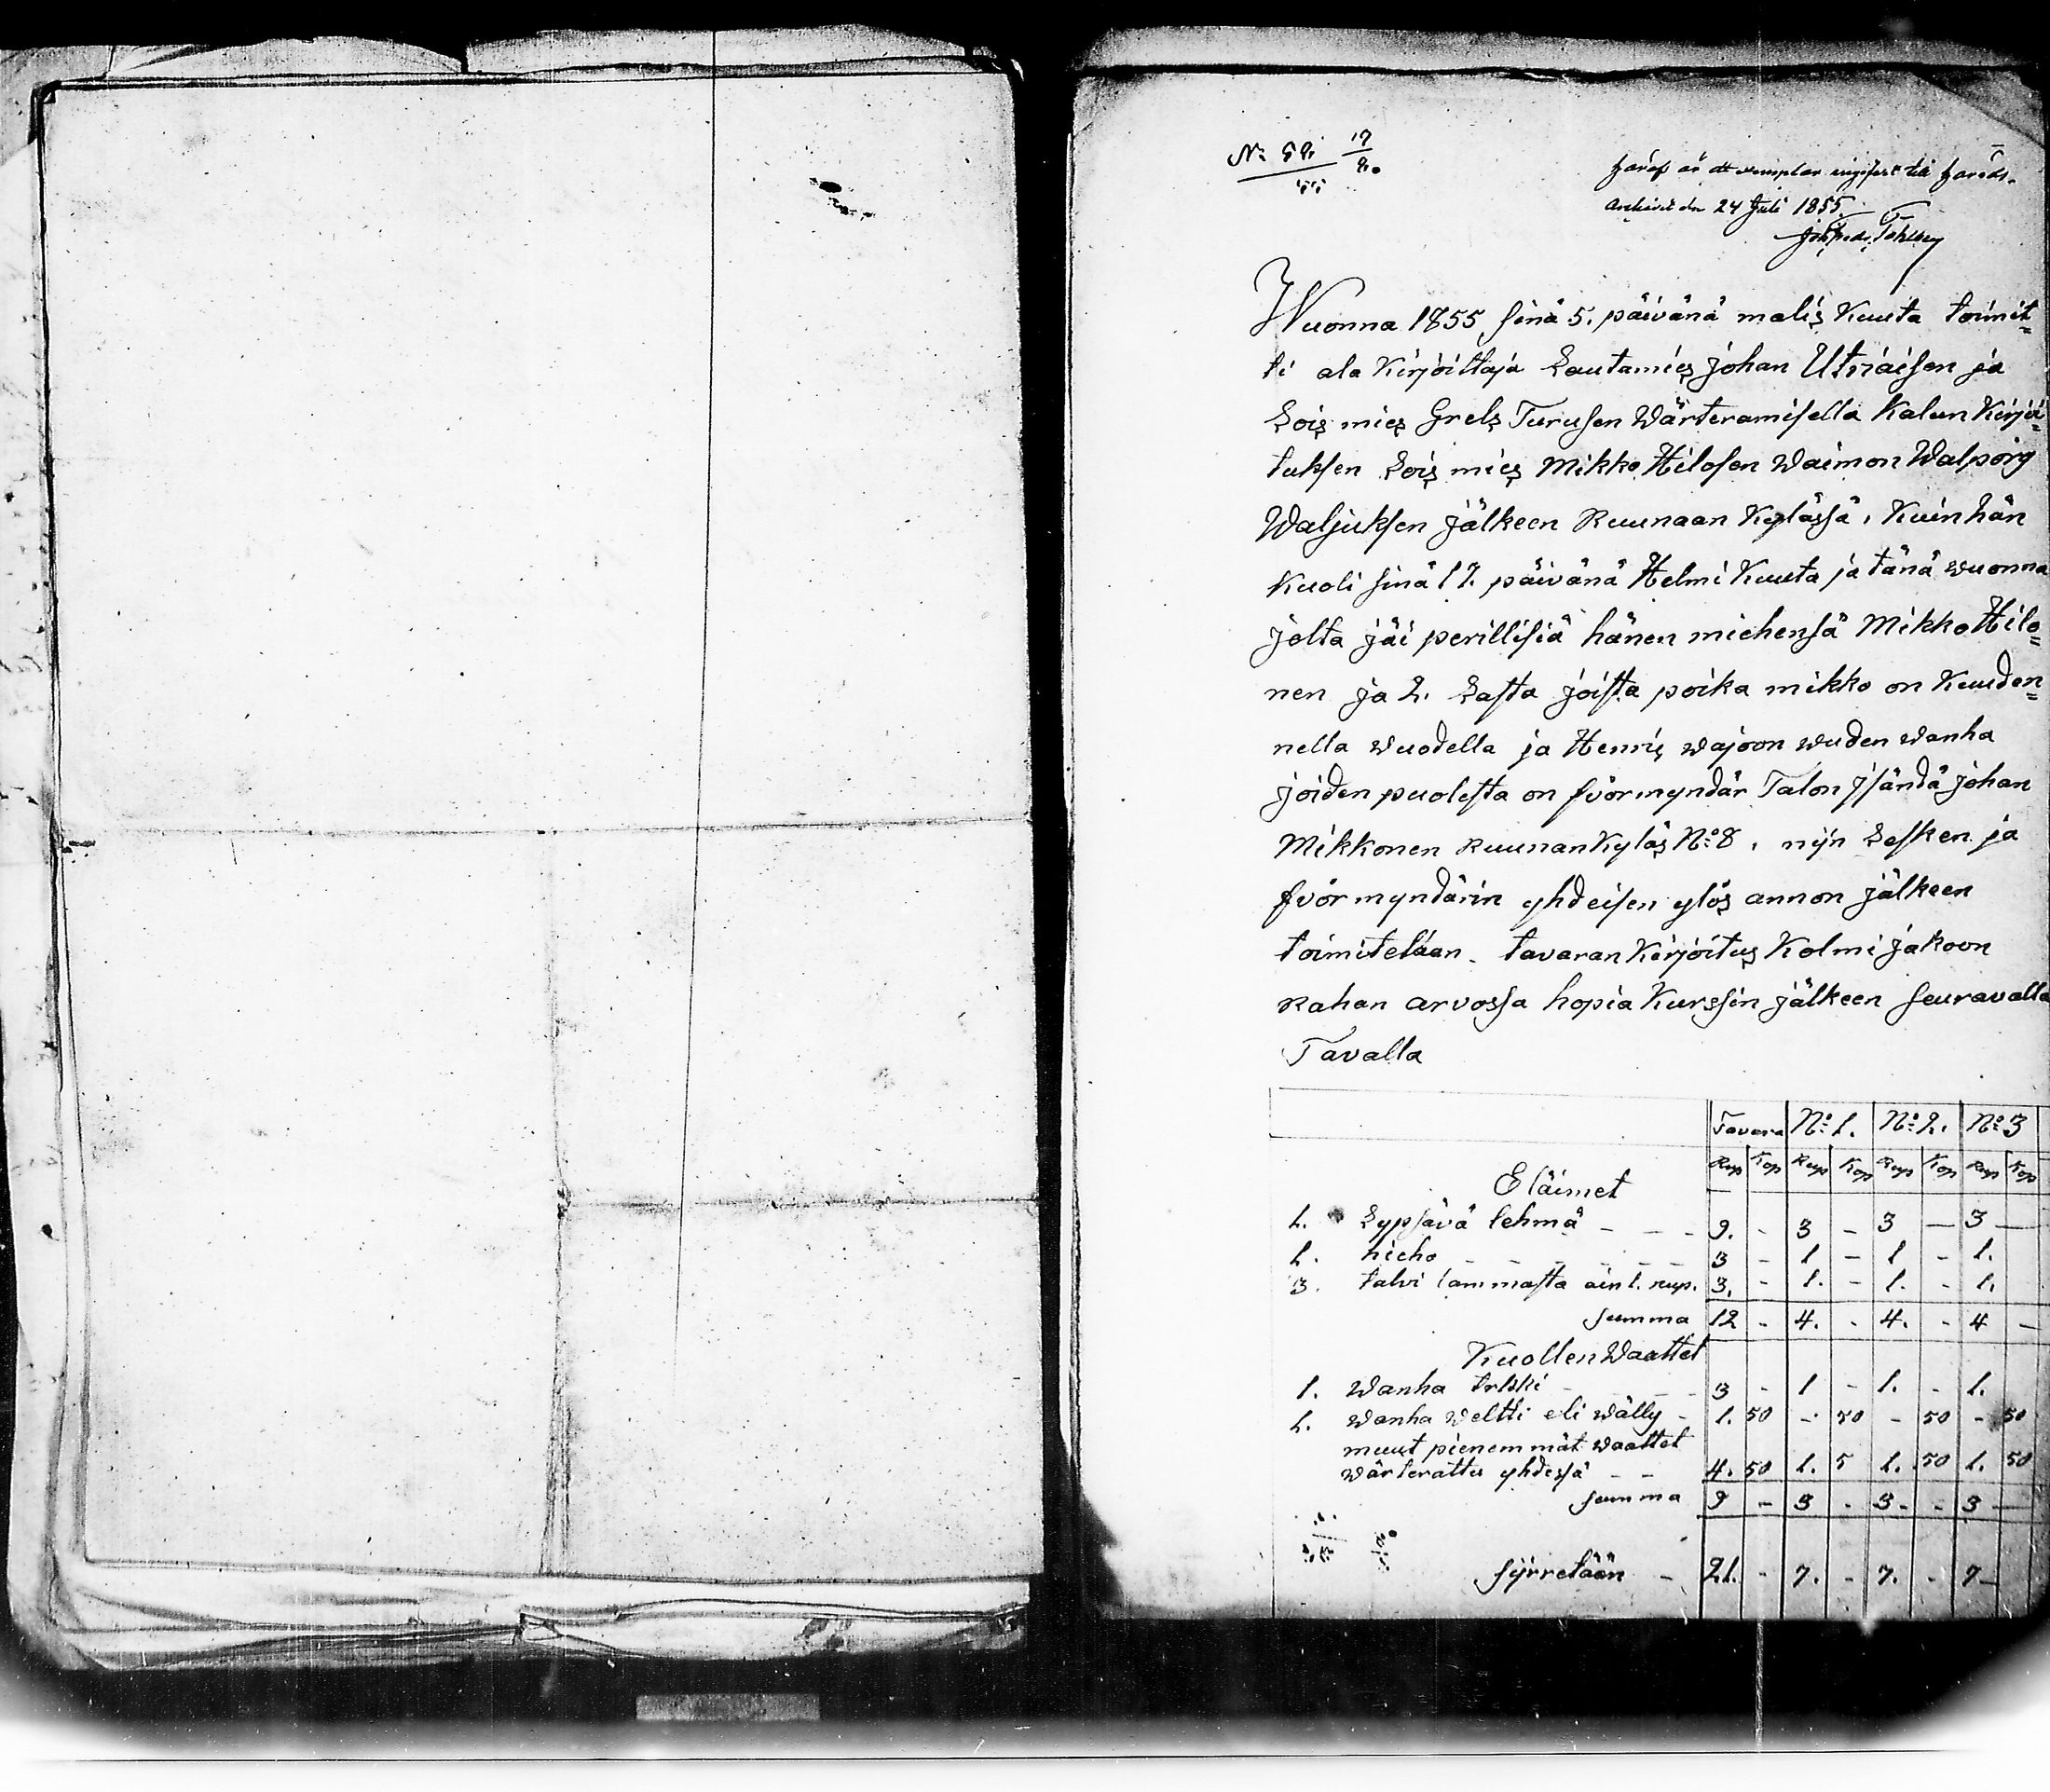 Häraf är ett exemplar ingifvit till Härads-
Archivet den 24 Juli 1855.
Wuonna 1855 sinä 5. päivänä malis Kuuta toimit=
ti ala Kirjoittaja Lautamies Johan Utriaisen ja
Lois mies Grels Turusen Wärteramisella Kalun Kirjoi=
tuksen Lois mies Mikko Hilosen Waimon Walpörg
Waljuksen jälkeen Ruunaan Kylässä, Kuin hän
Kuoli sinä 17. päivänä Helmi Kuuta ja tänä wuonna
jolta jäi perillisiä hänen miehensä Mikko Hilo=
nen ja 2. Lasta joista poika mikko on Kuuden=
nella wuodella ja Henris wajoon wuden wanha
joiden puolesta on fvörmyndär Talon Jsändä Johan
Mikkonen Ruunan Kyläs No: 8, nijn Lesken ja
fvörmyndärin yhdeisen ylös annon jälkeen
toimitelaan tavaran Kirjoitus Kolmi jakoon
Rahan arvossa hopia Kurssin jälkeen seuravalla
Tavalla
Tavara No: 1. No: 2. No: 3
Rup Kop Rup Kop Rup Kop Rup Kop
Eläimet
1. Lypsävä lehmä - - - 9. - 3 - 3 - 3 -
1. hieho - - - 3 - 1 - 1 - 1.
3. talvi lammasta ain 1. rup. 3. - 1. - 1. - 1.
summa 12 - 4. - 4. - 4 -
Kuollen Waattet
1. Wanha - - - 3 - 1 - 1. - 1.
1. wanha weltti eli wälly - 1. 50 - 50 - 50 - 50
muut pienemmät waattet
wärterattu yhdessä - - 4. 50 1. 5 1. 50 1. 50
summa 9 - 3 - 3 - - 3 -
sijrretään - 21. - 7. - 7. - 7 -